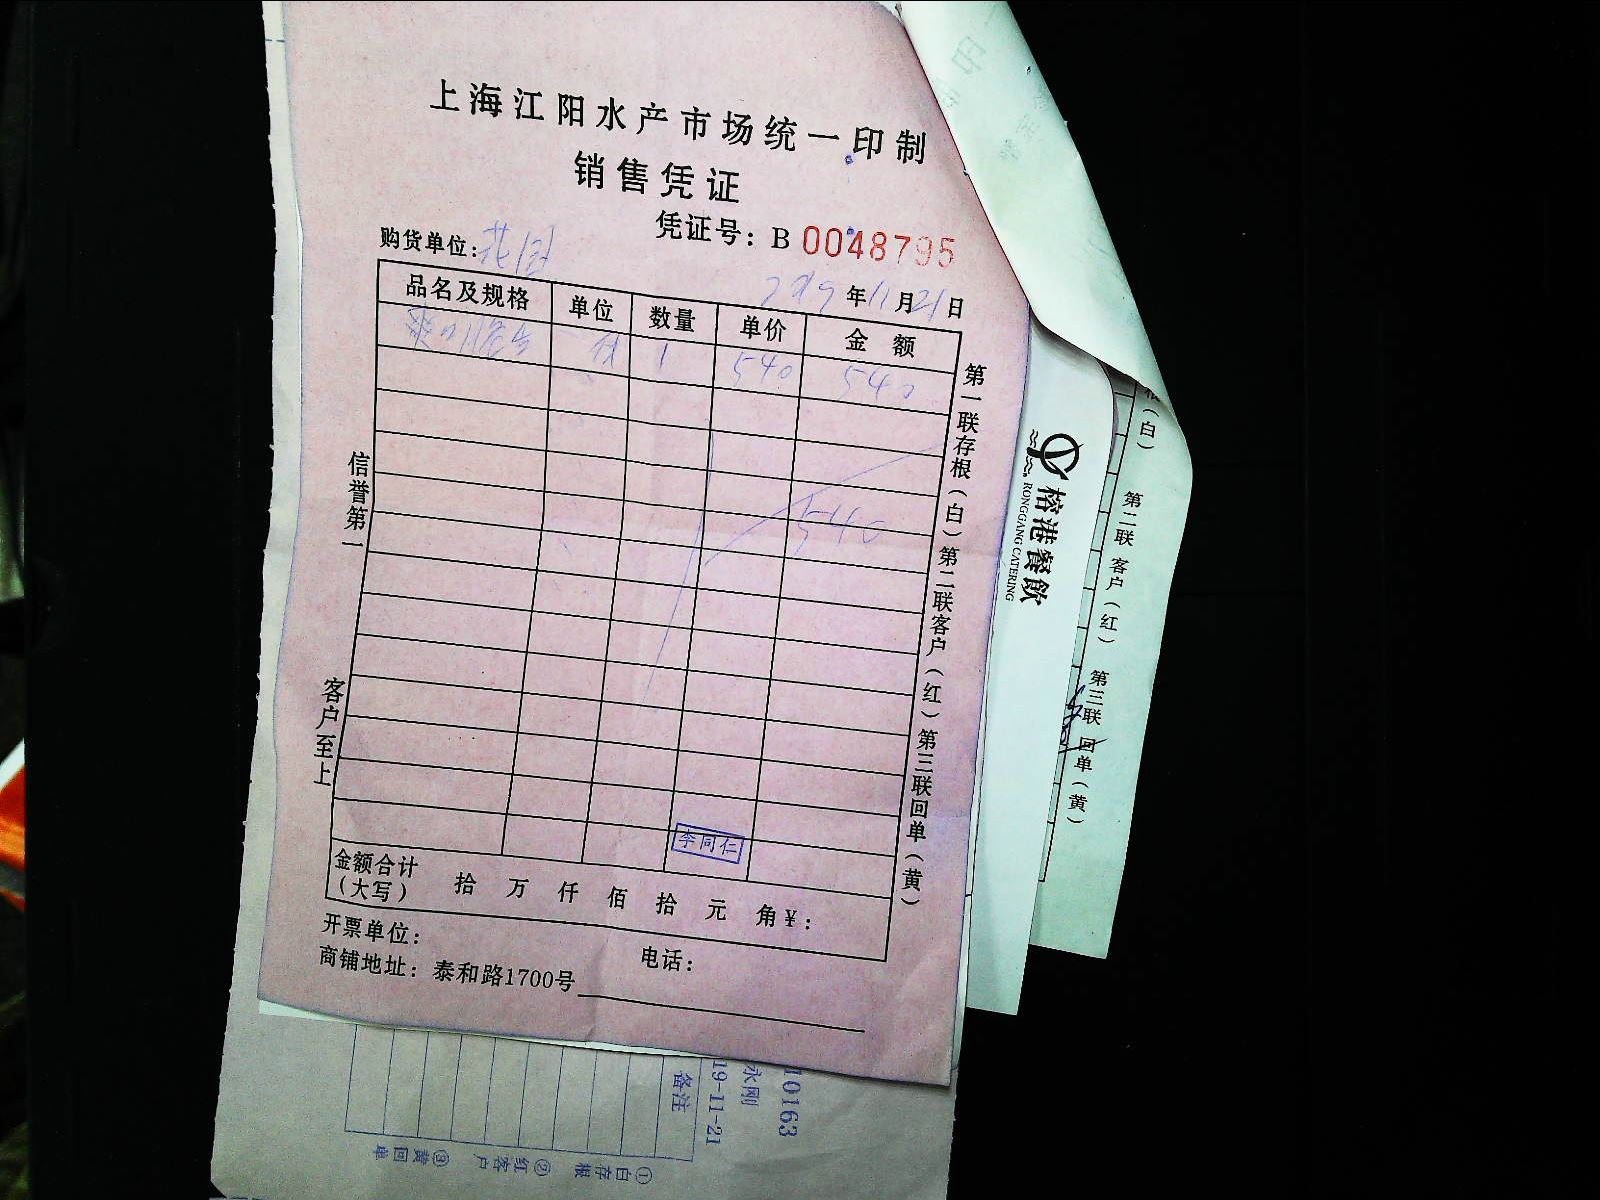 上海江阳水产市场统一印制
销售凭证
凭证号：B 0048795
购货单位：花园
2019年11月21日
品名及规格 单位 数量 单价 金额
1 540 540
540
信誉第一
客户至上
第一联存根（白）第二联客户（红）第三联回单（黄）
李同仁
金额合计（大写） 拾 万 仟 佰 拾 元 角 ¥：
开票单位：
电话：
商铺地址：泰和路1700号
榕港餐飲
RONGGANG CATERING
根（白） 第二联 客户（红） 第三联 回单（黄）
10163
永刚
19-11-21
备注
①白存根 ②红客户 ③黄回单